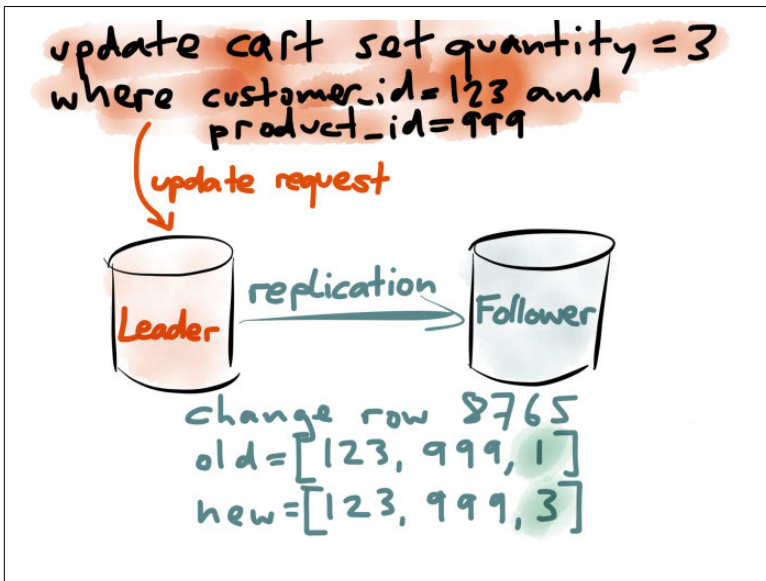 update cart set quantity = 3
where customer_id = 123 and
product_id = 999
update request
replication
Leader
Follower
change row 8765
old = [123, 999, 1]
new = [123, 999, 3]